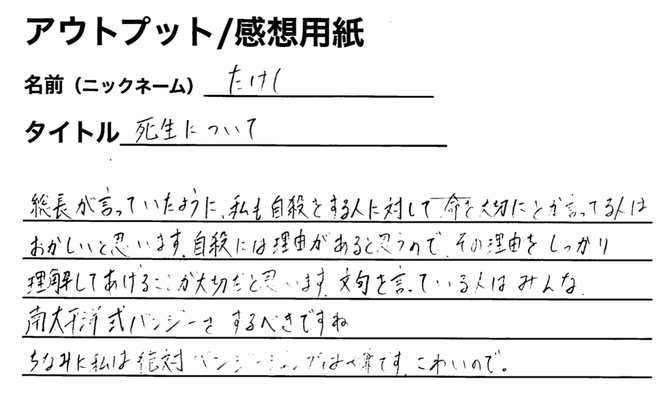 アウトプット/感想用紙
名前（ニックネーム） たけし
タイトル 死生について
総長が言っていたように、私も自殺をする人に対して命を大切にとか言ってる人は
おかしいと思います。自殺には理由があると思うので、その理由をしっかり
理解してあげることが大切だと思います。文句を言っている人はみんな、
南太平洋式バンジーをするべきですね
ちなみに私は絶対バンジージャンプは嫌です。こわいので。